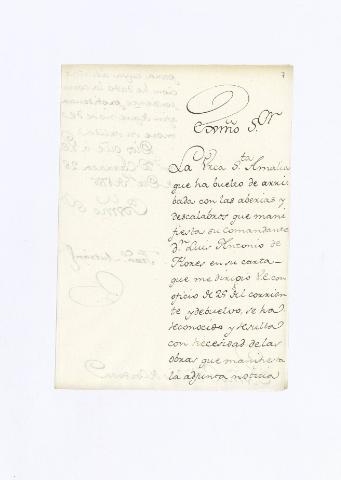 7
Exmo. S.or
La Urca S.ta Amalia
que ha buelto de arri-
bada con las aberias y
descalabros que mani-
fiesta su Comandante
D.n Luis Antonio de
Flores en su carta
que me dirigio V.E. con
oficio de 25 del corrien-
te y debuelvo, se ha
reconocido y resulta
con necesidad de las
obras que manifiesta
la adjunta noticia